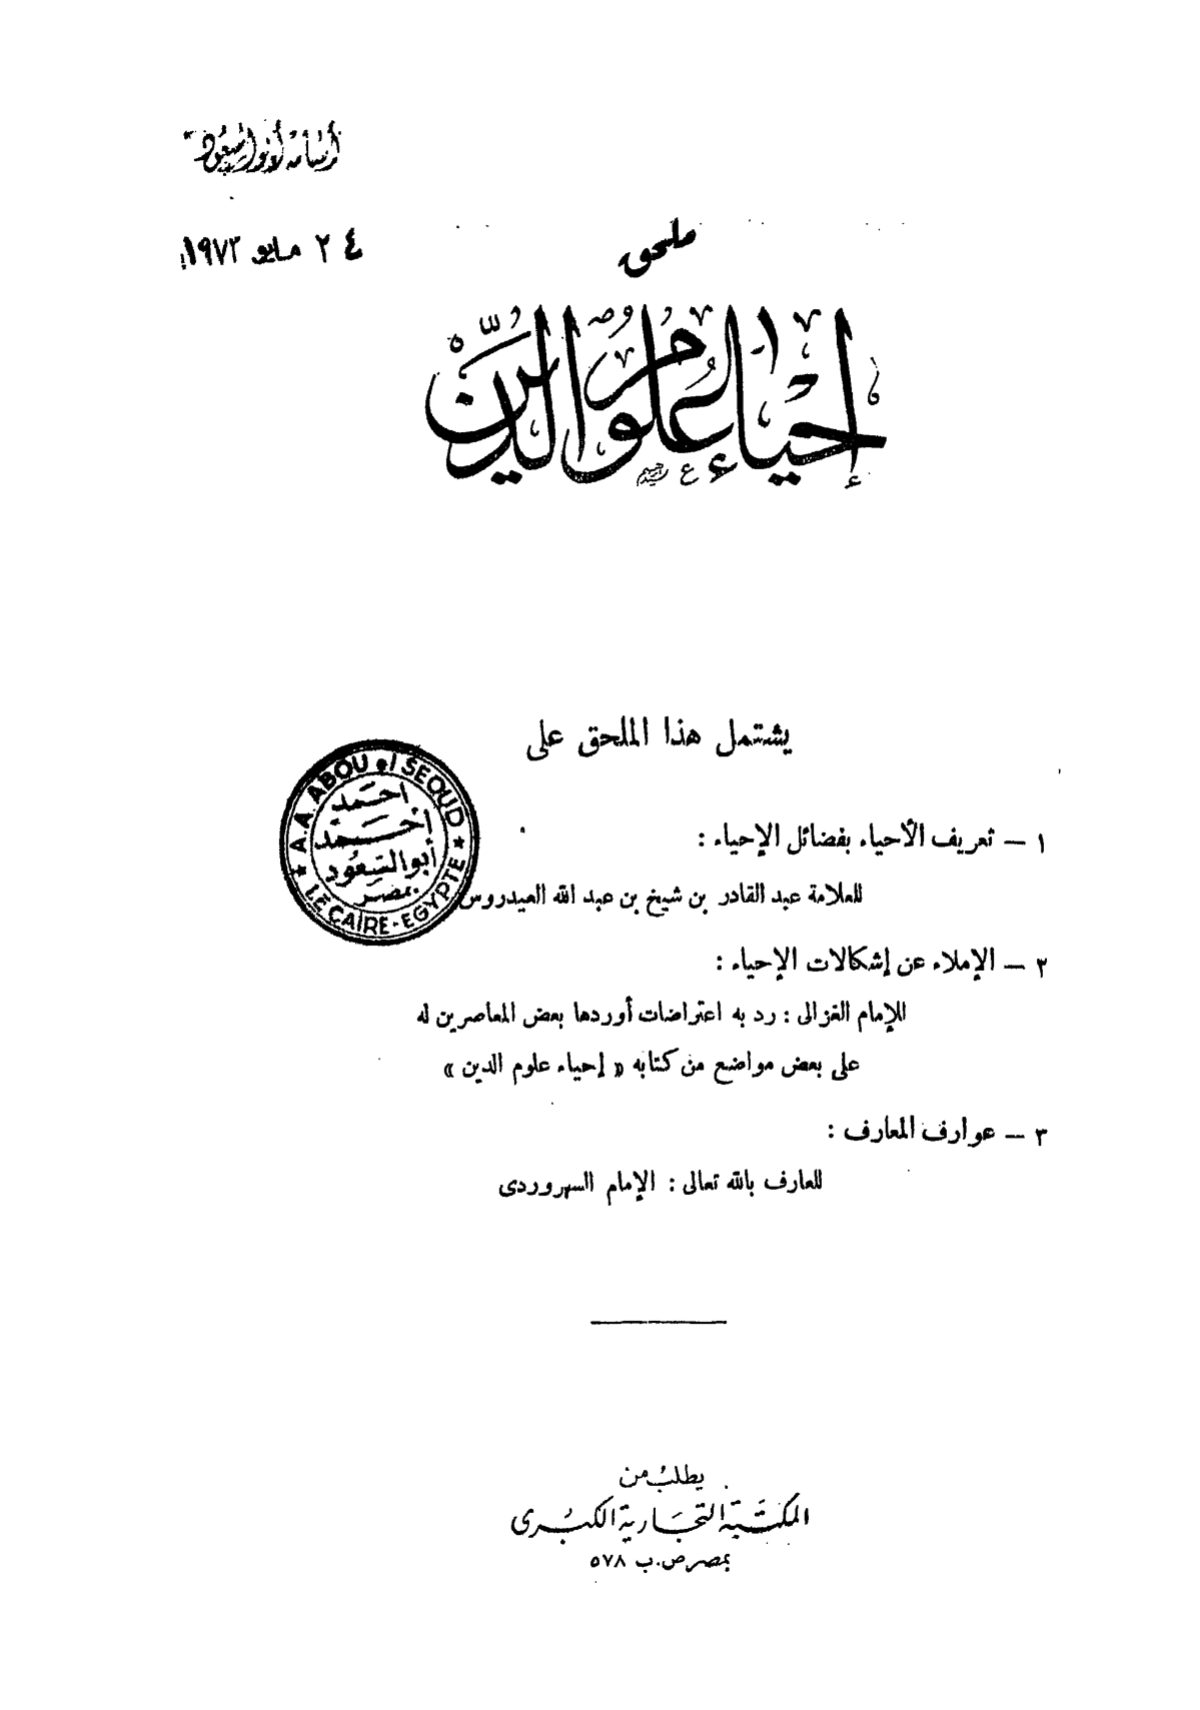 أسامة أبو السعود
٢٤ مايو ١٩٧٢
ملحق
إحياء علوم الدين
يشتمل هذا الملحق على
A. A. ABOU el SEOUD
احمد
احمد
أبو السعود
بمصر
LE CAIRE - EGYPTE
١ — تعريف الأحياء بفضائل الإحياء :
للعلامة عبد القادر بن شيخ بن عبد الله العيدروس
٢ — الإملاء عن إشكالات الإحياء :
للإمام الغزالى : رد به اعتراضات أوردها بعض المعاصرين له
على بعض مواضع من كتابه « إحياء علوم الدين »
٣ — عوارف المعارف :
للعارف بالله تعالى : الإمام السهروردى
يطلب من
المكتبة التجارية الكبرى
بمصر ص.ب ٥٧٨